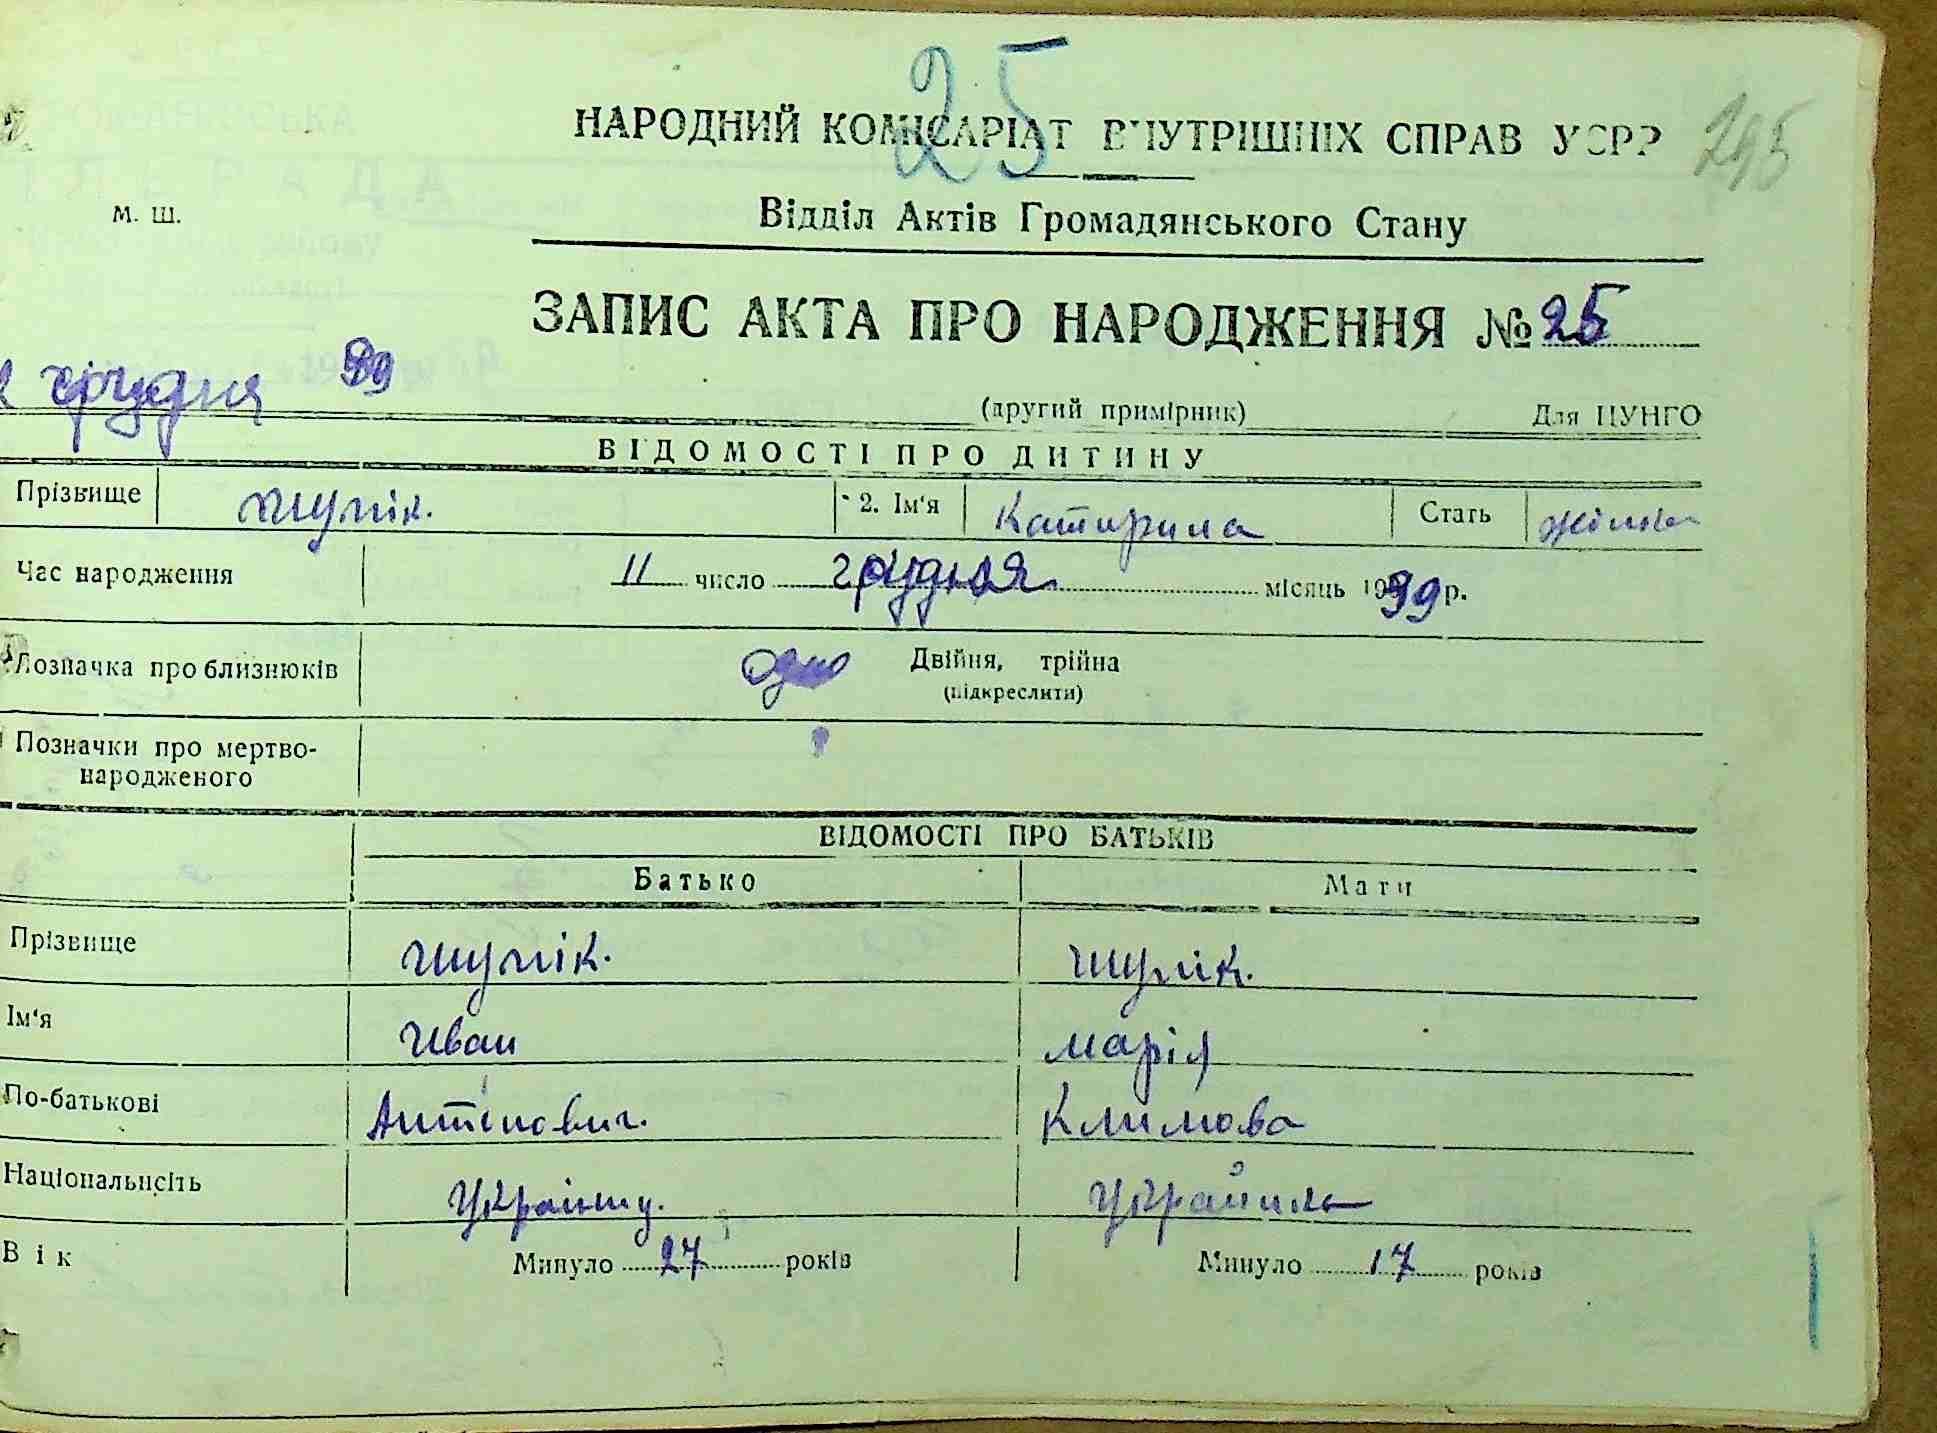 25
НАРОДНИЙ КОМІСАРІАТ ВНУТРІШНІХ СПРАВ УСРР
М. Ш.
Відділ Актів Громадянського Стану
ЗАПИС АКТА ПРО НАРОДЖЕННЯ № 25
грудня
(другий примірник) Для ЦУНГО
ВІДОМОСТІ ПРО ДИТИНУ
Прізвище 2. Ім'я Катирина Стать
Час народження 11 число грудня місяць 1939 р.
Позначка про близнюків одно Двійня, трійна
(підкреслити)
Позначки про мертво-
народженого
ВІДОМОСТІ ПРО БАТЬКІВ
Батько Мати
Прізвище
Ім'я Иван Марія
По-батькові Антінович. Климова
Національність
Вік Минуло 27 років Минуло 17 років